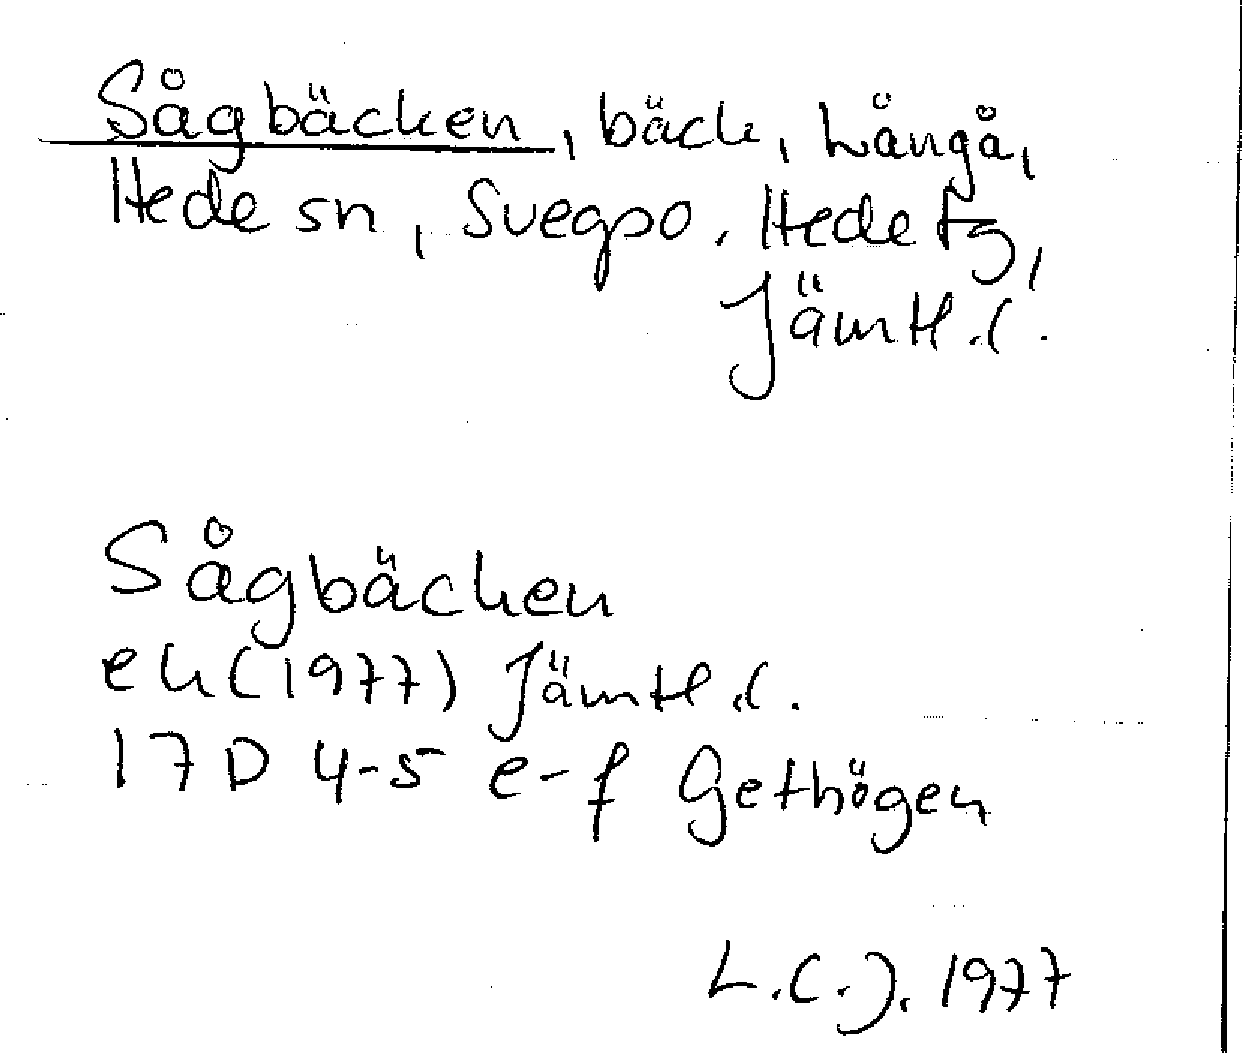 Sågbäcken, bäck, Långå,
Hede sn, Svegpo. Hede tg,
Jämtl.l.
Sågbäcken
ek (1977) Jämtl.l.
17D 4-5 e-f Gethögen
L.C.J. 1977